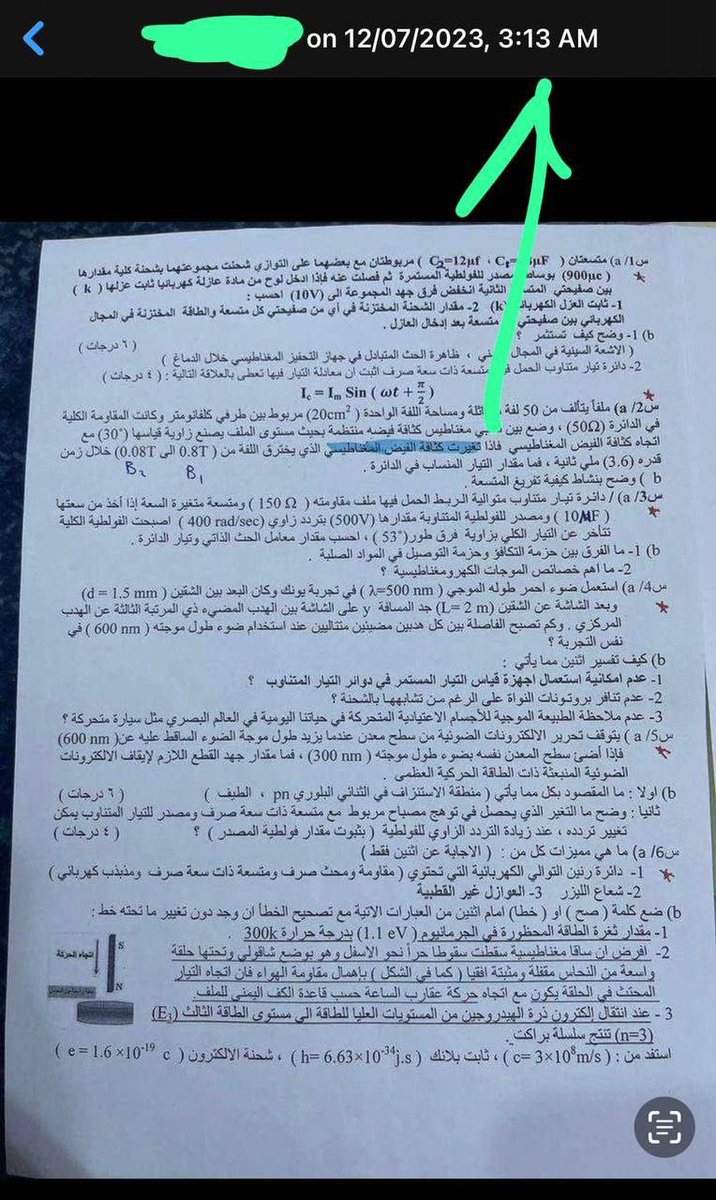 on 12/07/2023, 3:13 AM
س1/ a) متسعتان ( C₂=12µf ، C₁= µF ) مربوطتان مع بعضهما على التوازي شحنت مجموعتهما بشحنة كلية مقدارها
( 900µc) بوساطة مصدر للفولطية المستمرة ثم فصلت عنه فإذا ادخل لوح من مادة عازلة كهربائيا ثابت عزلها ( k )
بين صفيحتي المتسعة الثانية انخفض فرق جهد المجموعة الى (10V) احسب :
1- ثابت العزل الكهربائي (k) 2- مقدار الشحنة المختزنة في أي من صفيحتي كل متسعة والطاقة المختزنة في المجال
الكهربائي بين صفيحتي متسعة بعد إدخال العازل.
b) 1- وضح كيف تستثمر ؟ ( ٦ درجات )
( الاشعة السينية في المجال ، ظاهرة الحث المتبادل في جهاز التحفيز المغناطيسي خلال الدماغ )
2- دائرة تيار متناوب الحمل فيها متسعة ذات سعة صرف اثبت ان معادلة التيار فيها تعطى بالعلاقة التالية : ( ٤ درجات )
I꜀ = Iₘ Sin ( ωt + π/2 )
س2/ a) ملفاً يتألف من 50 لفة متماثلة ومساحة اللفة الواحدة ( 20cm²) مربوط بين طرفي كلفانومتر وكانت المقاومة الكلية
في الدائرة (50Ω) ، وضع بين مغناطيس كثافة فيضه منتظمة بحيث مستوى الملف يصنع زاوية قياسها (30°) مع
اتجاه كثافة الفيض المغناطيسي فاذا تغيرت كثافة الفيض المغناطيسي الذي يخترق اللفة من ( 0.8T الى 0.08T) خلال زمن
قدره (3.6) ملي ثانية ، فما مقدار التيار المنساب في الدائرة .
B₁ B₂
b) وضح بنشاط كيفية تفريغ المتسعة .
س3/ a) دائرة تيار متناوب متوالية الربط الحمل فيها ملف مقاومته ( 150 Ω ) ومتسعة متغيرة السعة إذا أخذ من سعتها
( 10MF ) ومصدر للفولطية المتناوبة مقدارها (500V) بتردد زاوي (400 rad/sec) اصبحت الفولطية الكلية
تتأخر عن التيار الكلي بزاوية فرق طور( 53°) ، احسب مقدار معامل الحث الذاتي وتيار الدائرة .
b) 1- ما الفرق بين حزمة التكافؤ وحزمة التوصيل في المواد الصلبة .
2- ما اهم خصائص الموجات الكهرومغناطيسية ؟
س4/ a) استعمل ضوء احمر طوله الموجي ( λ=500 nm ) في تجربة يونك وكان البعد بين الشقين ( d = 1.5 mm)
وبعد الشاشة عن الشقين (L= 2 m) جد المسافة y على الشاشة بين الهدب المضيء ذي المرتبة الثالثة عن الهدب
المركزي . وكم تصبح الفاصلة بين كل هدبين مضيئين متتاليين عند استخدام ضوء طول موجته ( 600 nm ) في
نفس التجربة ؟
b) كيف تفسر اثنين مما يأتي :
1- عدم امكانية استعمال اجهزة قياس التيار المستمر في دوائر التيار المتناوب ؟
2- عدم تنافر بروتونات النواة على الرغم من تشابهها بالشحنة ؟
3- عدم ملاحظة الطبيعة الموجية للأجسام الاعتيادية المتحركة في حياتنا اليومية في العالم البصري مثل سيارة متحركة ؟
س5/ a ) يتوقف تحرير الالكترونات الضوئية من سطح معدن عندما يزيد طول موجة الضوء الساقط عليه عن( 600 nm)
فإذا أضئ سطح المعدن نفسه بضوء طول موجته ( 300 nm) ، فما مقدار جهد القطع اللازم لإيقاف الالكترونات
الضوئية المنبعثة ذات الطاقة الحركية العظمى .
b) اولا : ما المقصود بكل مما يأتي ( منطقة الاستنزاف في الثنائي البلوري pn ، الطيف ) ( ٦ درجات )
ثانيا : وضح ما التغير الذي يحصل في توهج مصباح مربوط مع متسعة ذات سعة صرف ومصدر للتيار المتناوب يمكن
تغيير تردده ، عند زيادة التردد الزاوي للفولطية ( بثبوت مقدار فولطية المصدر ) ؟ ( ٤ درجات )
س6/ a) ما هي مميزات كل من : ( الاجابة عن اثنين فقط )
1- دائرة رنين التوالي الكهربائية التي تحتوي ( مقاومة ومحث صرف ومتسعة ذات سعة صرف ومذبذب كهربائي )
2- شعاع الليزر 3- العوازل غير القطبية
b) ضع كلمة ( صح ) او ( خطأ) امام اثنين من العبارات الاتية مع تصحيح الخطأ ان وجد دون تغيير ما تحته خط :
1- مقدار ثغرة الطاقة المحظورة في الجرمانيوم ( 1.1 eV ) بدرجة حرارة 300k .
2- افرض ان ساقا مغناطيسية سقطت سقوطا حراً نحو الاسفل وهو بوضع شاقولي وتحتها حلقة
واسعة من النحاس مقفلة ومثبتة افقيا ( كما في الشكل ) بإهمال مقاومة الهواء فان اتجاه التيار
المحتث في الحلقة يكون مع اتجاه حركة عقارب الساعة حسب قاعدة الكف اليمنى للملف.
اتجاه الحركة
S
N
3 - عند انتقال الكترون ذرة الهيدروجين من المستويات العليا للطاقة الى مستوى الطاقة الثالث (E₃)
(n=3) تنتج سلسلة براكت .
استفد من : ( c= 3×10⁸m/s ) ، ثابت بلانك ( h= 6.63×10⁻³⁴j.s ) ، شحنة الالكترون ( e = 1.6 ×10⁻¹⁹ c )